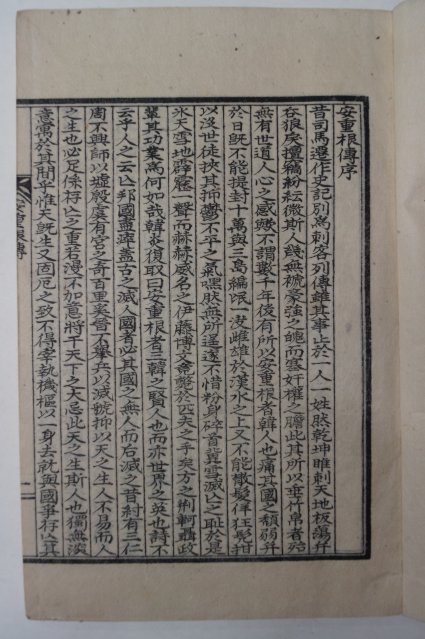 安重根傳序
昔司馬遷作史記別為刺客列傳雖其事止於一人一姓然乾坤睢刺天地板蕩幷
吞狼戾擅竊紛紜微斯人幾無褫豪強之魄而塞奸權之膽此其所以垂竹帛者殆
無有世道人心之感歟不謂數千年後有所以安重根者韓人也痛其國之頹弱幷
於日旣不能提封十萬與三島編氓一決雌雄於漢水之上又不能橄髮佯狂髡鉗
以沒世徒挾其抑鬱不平之氣嘿然無所逞遂不惜粉身碎首冀雪滅亡之恥於是
氷天雪地霹靂一聲而赫赫威名之伊藤博文乃斃於匹夫之手矣方之荊軻聶政
輩其功業為何如哉韓炎復取曰安重根者三韓之賢人也而亦世界之英也詩不
云乎人之云亡邦國盡瘁盖古之滅人國者必其國之無人而后滅之昔紂有三仁
周不興師以墟殷虞有宮之奇百里奚晉不擧兵以滅虢抑以天之生人不易而人
之生也必足係存亡之重若漫不加意將干天下之大忌此天之生斯人也獨無深
意寓於其間乎惟天旣生又固厄之致不得宰執機樞以一身去就與國爭存亡其
安重根傳
一